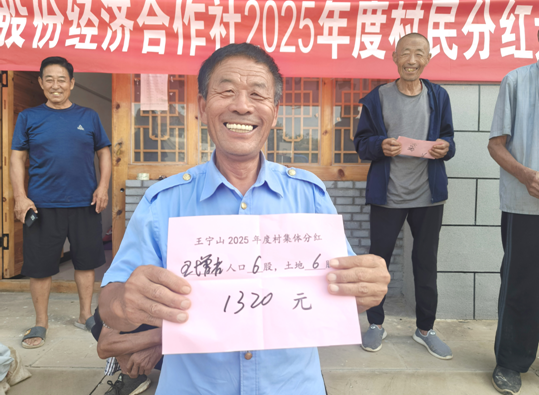 股份经济合作社2025年度村民分红
王宁山2025年度村集体分红
人口6股，土地6
1320元